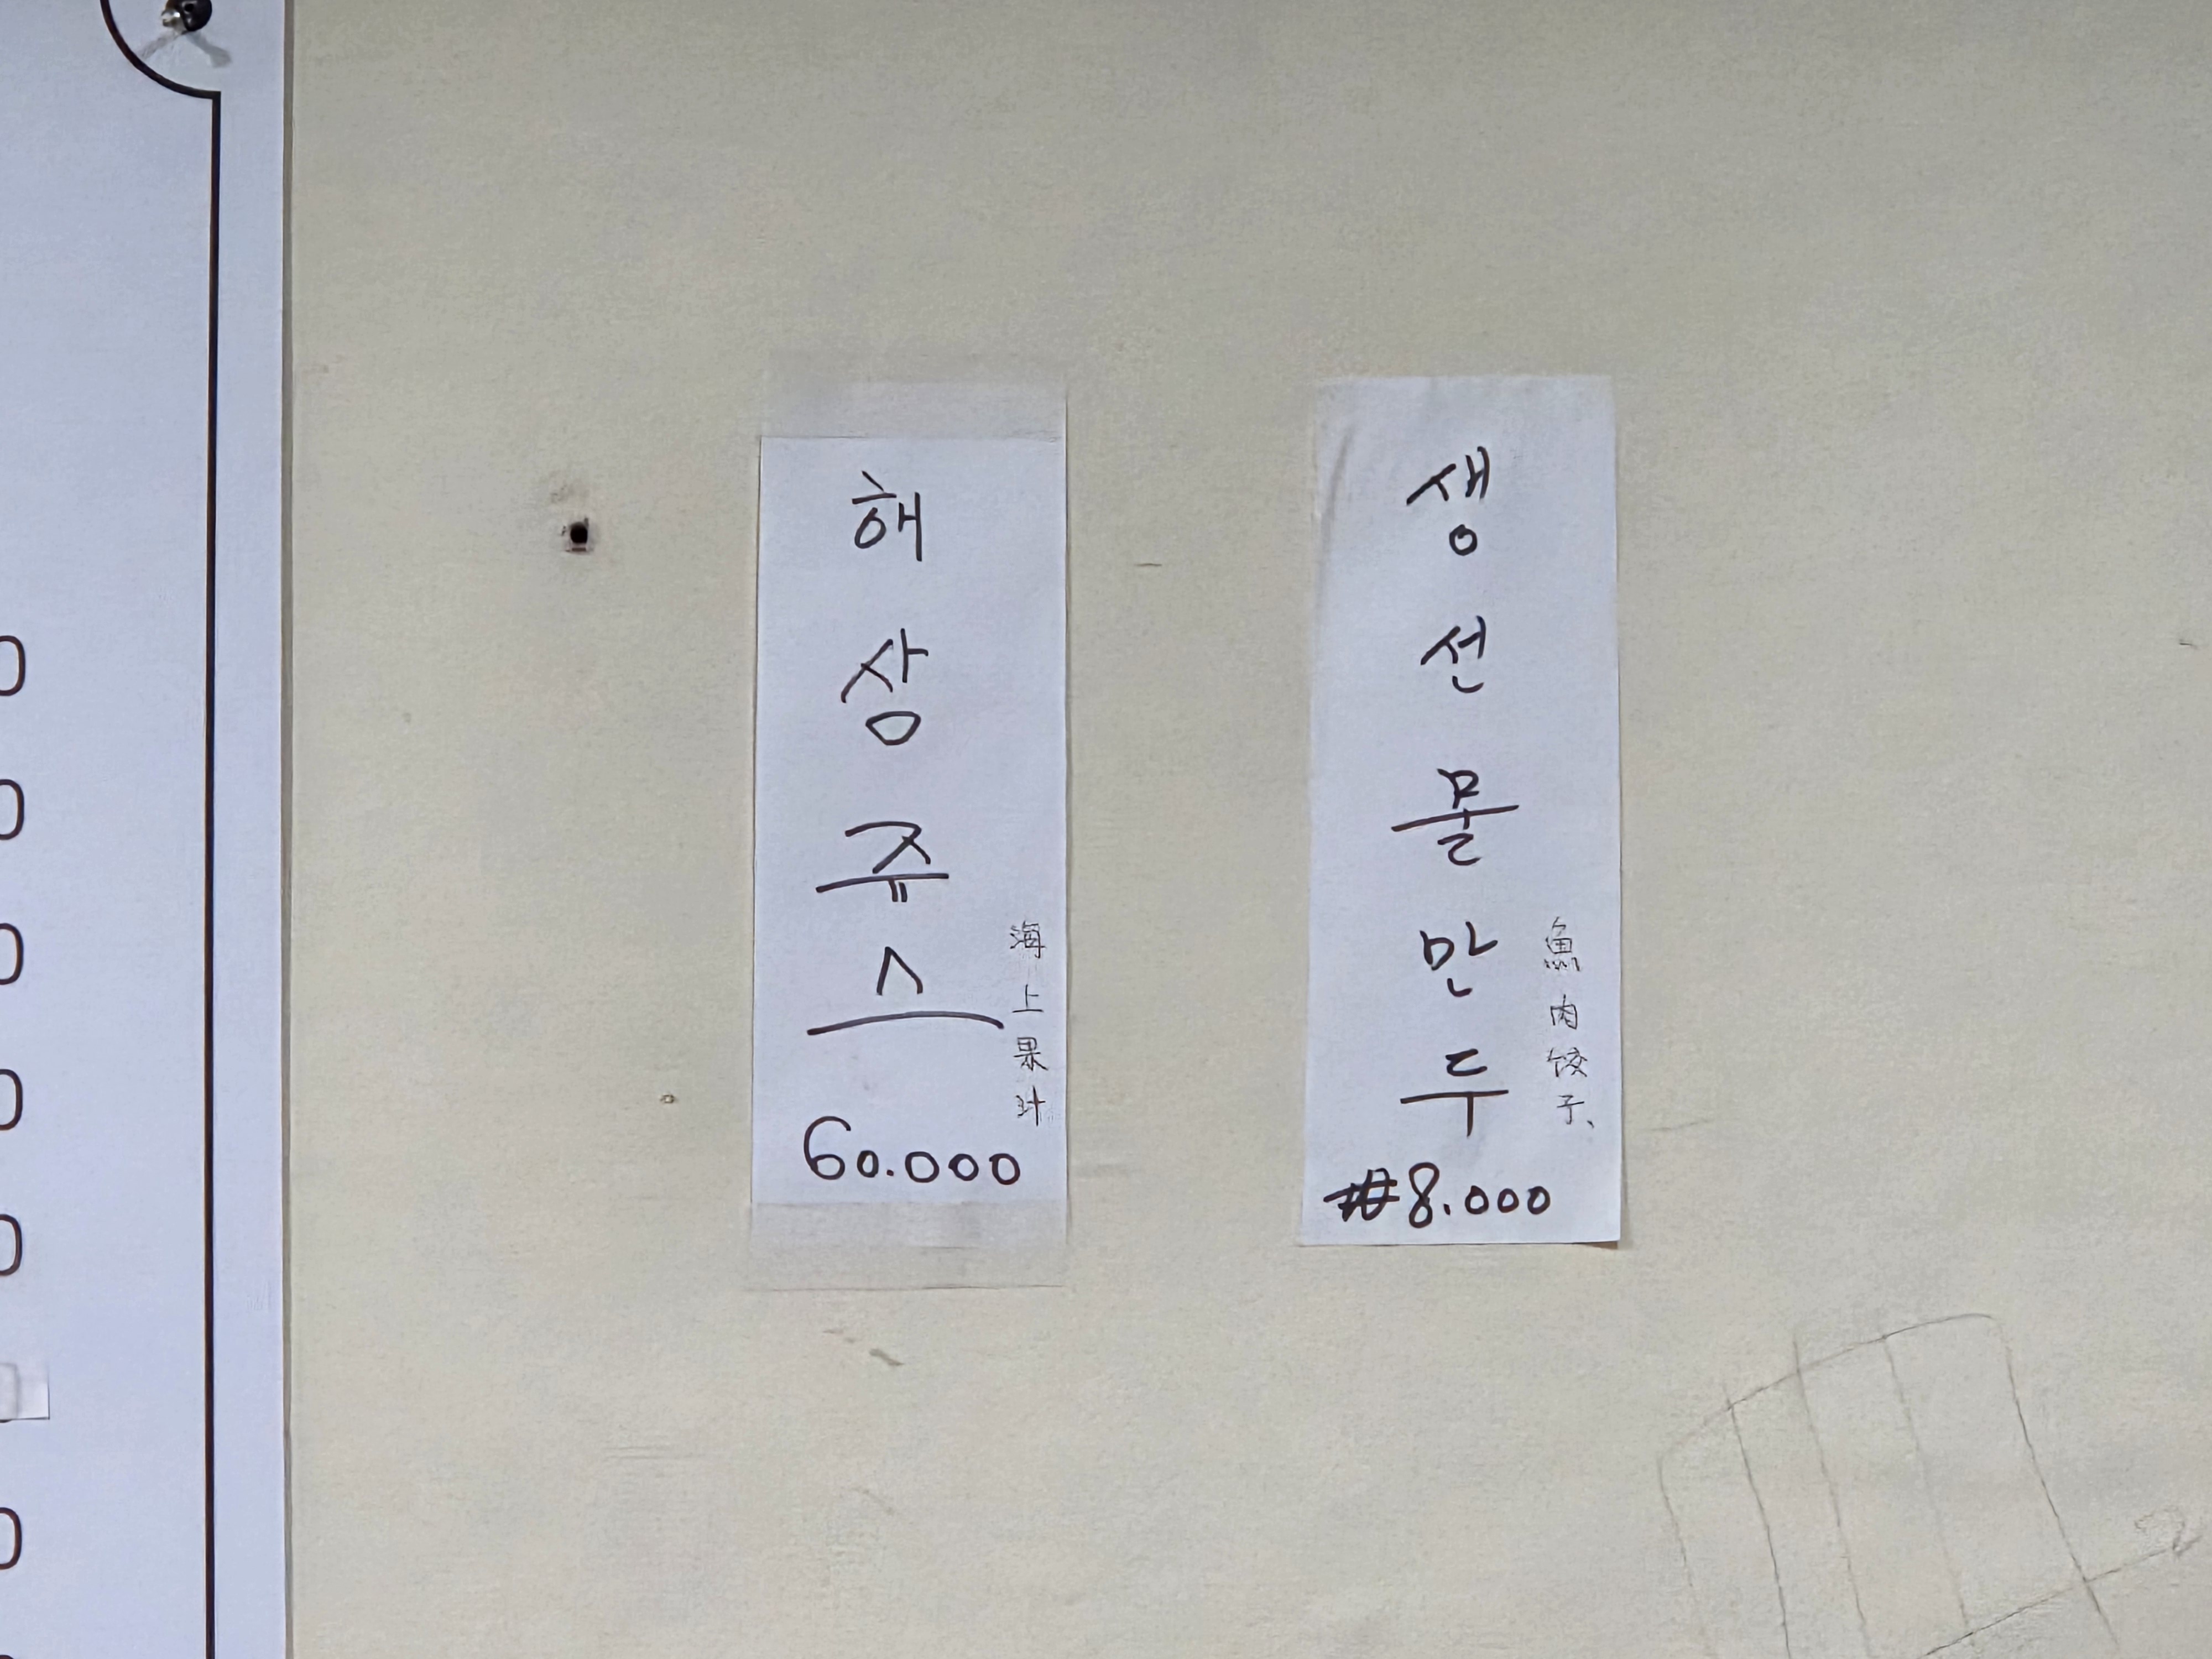 해상쥬스
海上果汁
60.000
생선물만두
魚肉饺子、
₩8.000